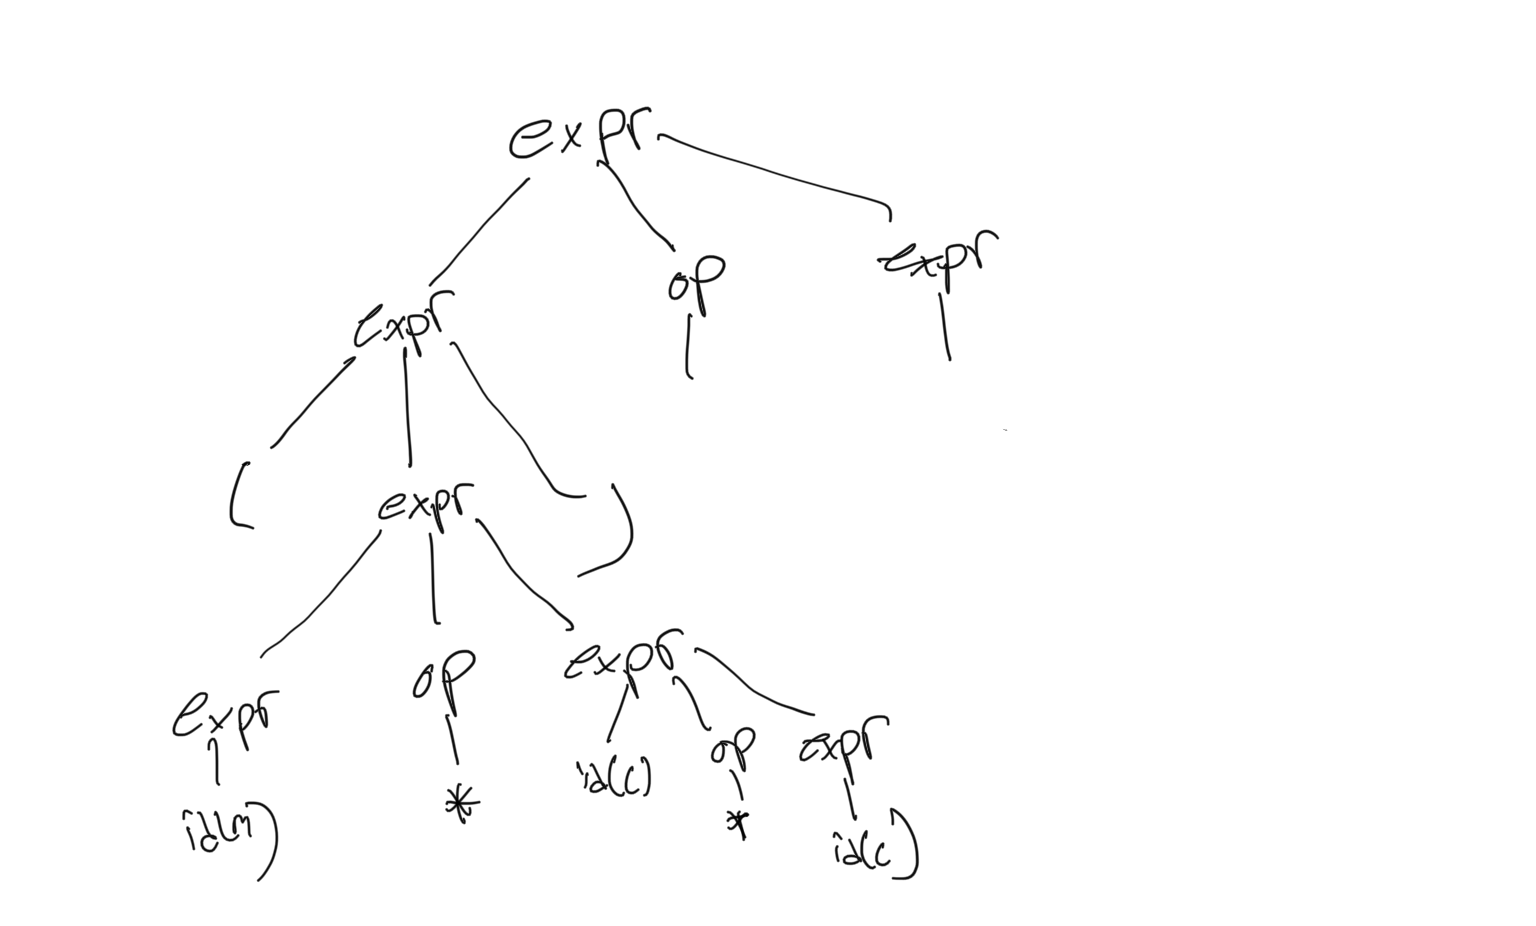 expr
expr op expr
( expr )
expr op expr
id(m) * id(c) op expr
* id(c)